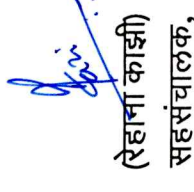 (रेहाना काझी)
सहसंचालक,